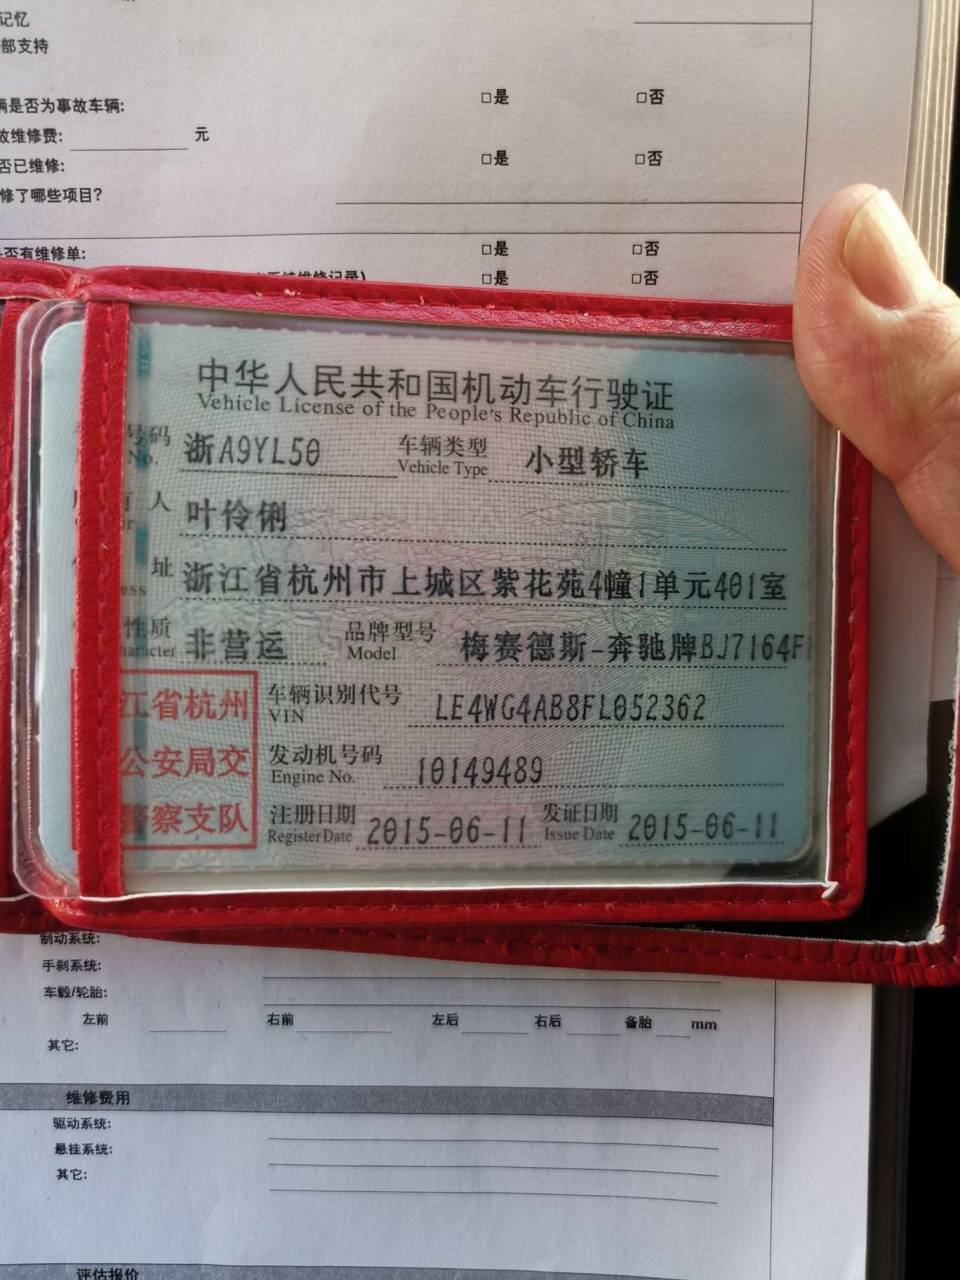 记忆
部支持
辆是否为事故车辆: □是 □否
故维修费: 元
否已维修: □是 □否
修了哪些项目?
是否有维修单: □是 □否
维修记录) □是 □否
中华人民共和国机动车行驶证
Vehicle License of the People's Republic of China
号码 浙A9YL50 车辆类型 小型轿车
No. Vehicle Type
人 叶伶俐
址 浙江省杭州市上城区紫花苑4幢1单元401室
ess
性质 非营运 品牌型号 梅赛德斯-奔驰牌BJ7164F
haracter Model
江省杭州
公安局交
警察支队
车辆识别代号 LE4WG4AB8FL052362
VIN
发动机号码 10149489
Engine No.
注册日期 2015-06-11 发证日期 2015-06-11
Register Date Issue Date
制动系统:
手刹系统:
车毂/轮胎:
左前 右前 左后 右后 备胎 mm
其它:
维修费用
驱动系统:
悬挂系统:
其它:
评估报价